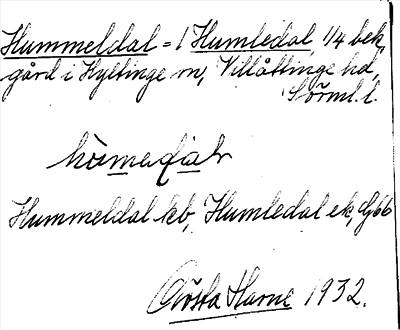 Hummeldal = 1 Humledal, 1/4 bek.
gård i Hyltinge sn, Villåttinge hd,
Sörml. l.
Hummeldal kb, Humledal ek, Gj66
Gösta Harne 1932.